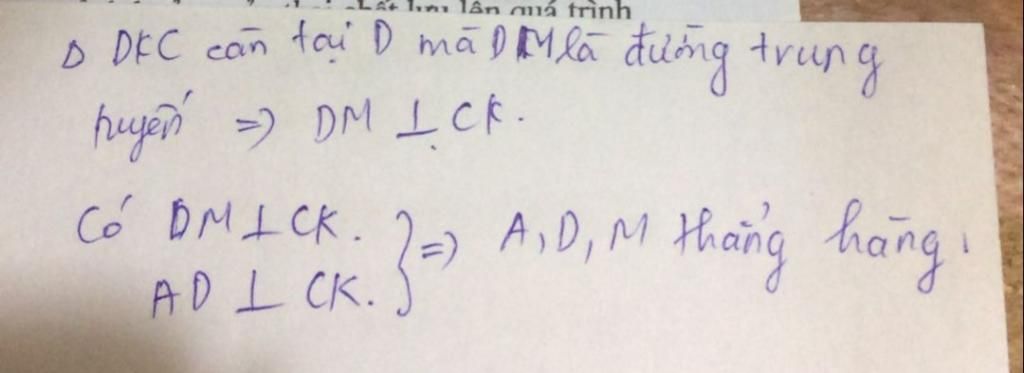 lân quá trình
Δ DKC cân tại D mà DM là đường trung
tuyến => DM ⊥ CK.
Có DM ⊥ CK. } => A, D, M thẳng hàng.
AD ⊥ CK.